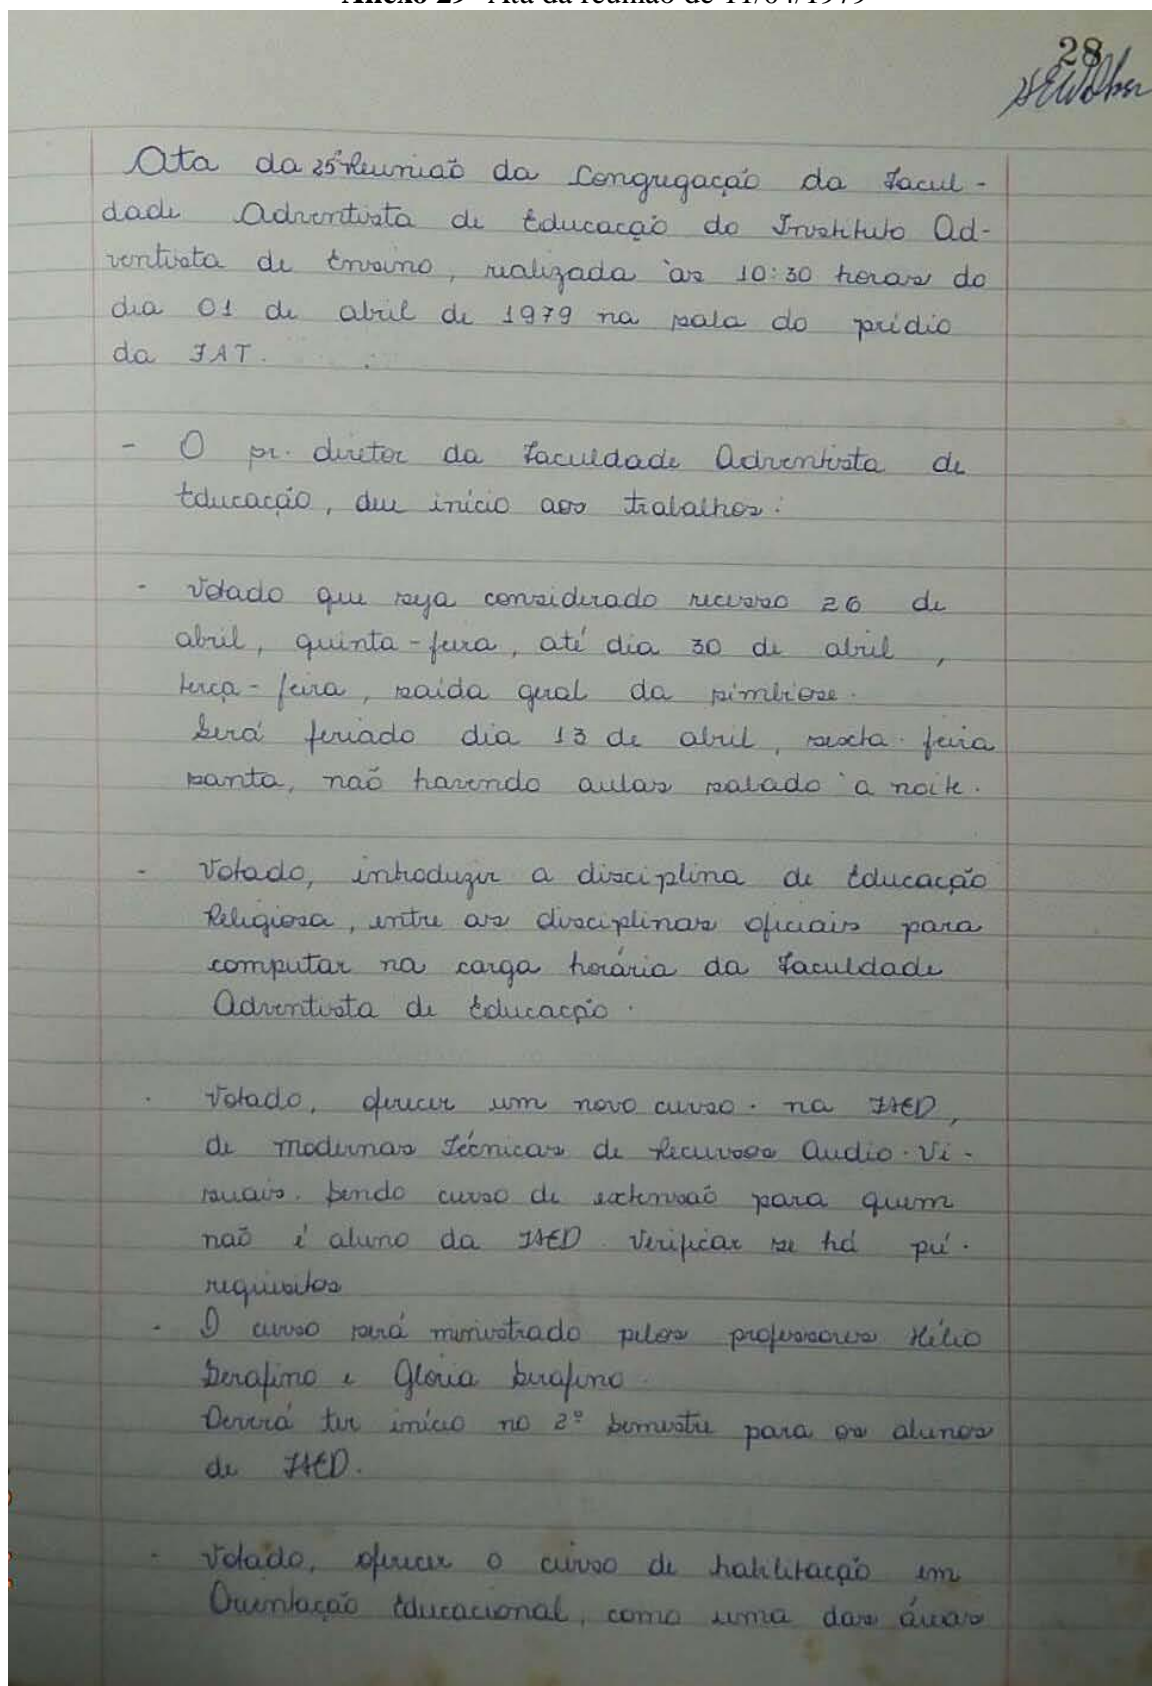 Anexo 29- Ata da reunião de 11/04/1979
28
Ata da 25ª Reunião da Congregação da Facul-
dade Adventista de Educação do Instituto Ad-
ventista de Ensino, realizada às 10:30 horas do
dia 01 de abril de 1979 na sala do prédio
da FAT.
- O pr. diretor da Faculdade Adventista de
Educação, deu início aos trabalhos:
- Votado que seja considerado recesso 26 de
abril, quinta-feira, até dia 30 de abril,
terça-feira, saída geral da simbiose.
Será feriado dia 13 de abril, sexta-feira
santa, não havendo aulas sabado à noite.
- Votado, introduzir a disciplina de Educação
Religiosa, entre as disciplinas oficiais para
computar na carga horária da Faculdade
Adventista de Educação.
- Votado, oferecer um novo curso. na FAED,
de modernas Técnicas de Recursos Audio-Vi-
suais. Sendo curso de extensão para quem
não é aluno da FAED. Verificar se há pré-
requisitos
- O curso será ministrado pelos professores Hélio
Serafino e Glória Serafino.
Deverá ter início no 2º Semestre para os alunos
de FAED.
- Votado, oferecer o curso de habilitação em
Orientação Educacional, como uma das áreas